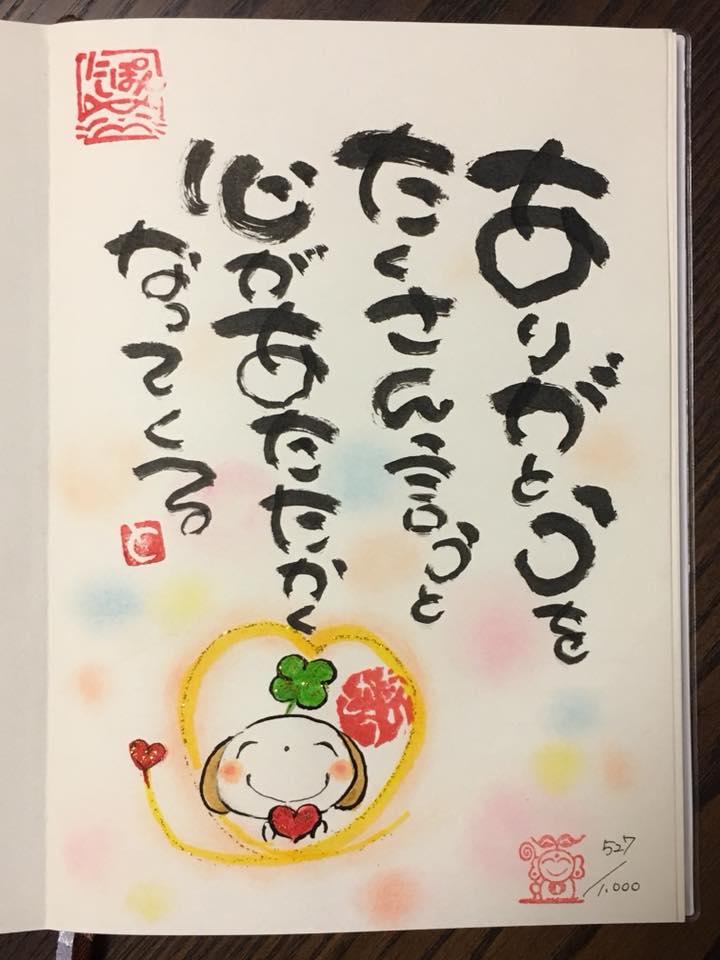 ありがとうを
たくさん言うと
心があたたかく
なってくる
527/1.000